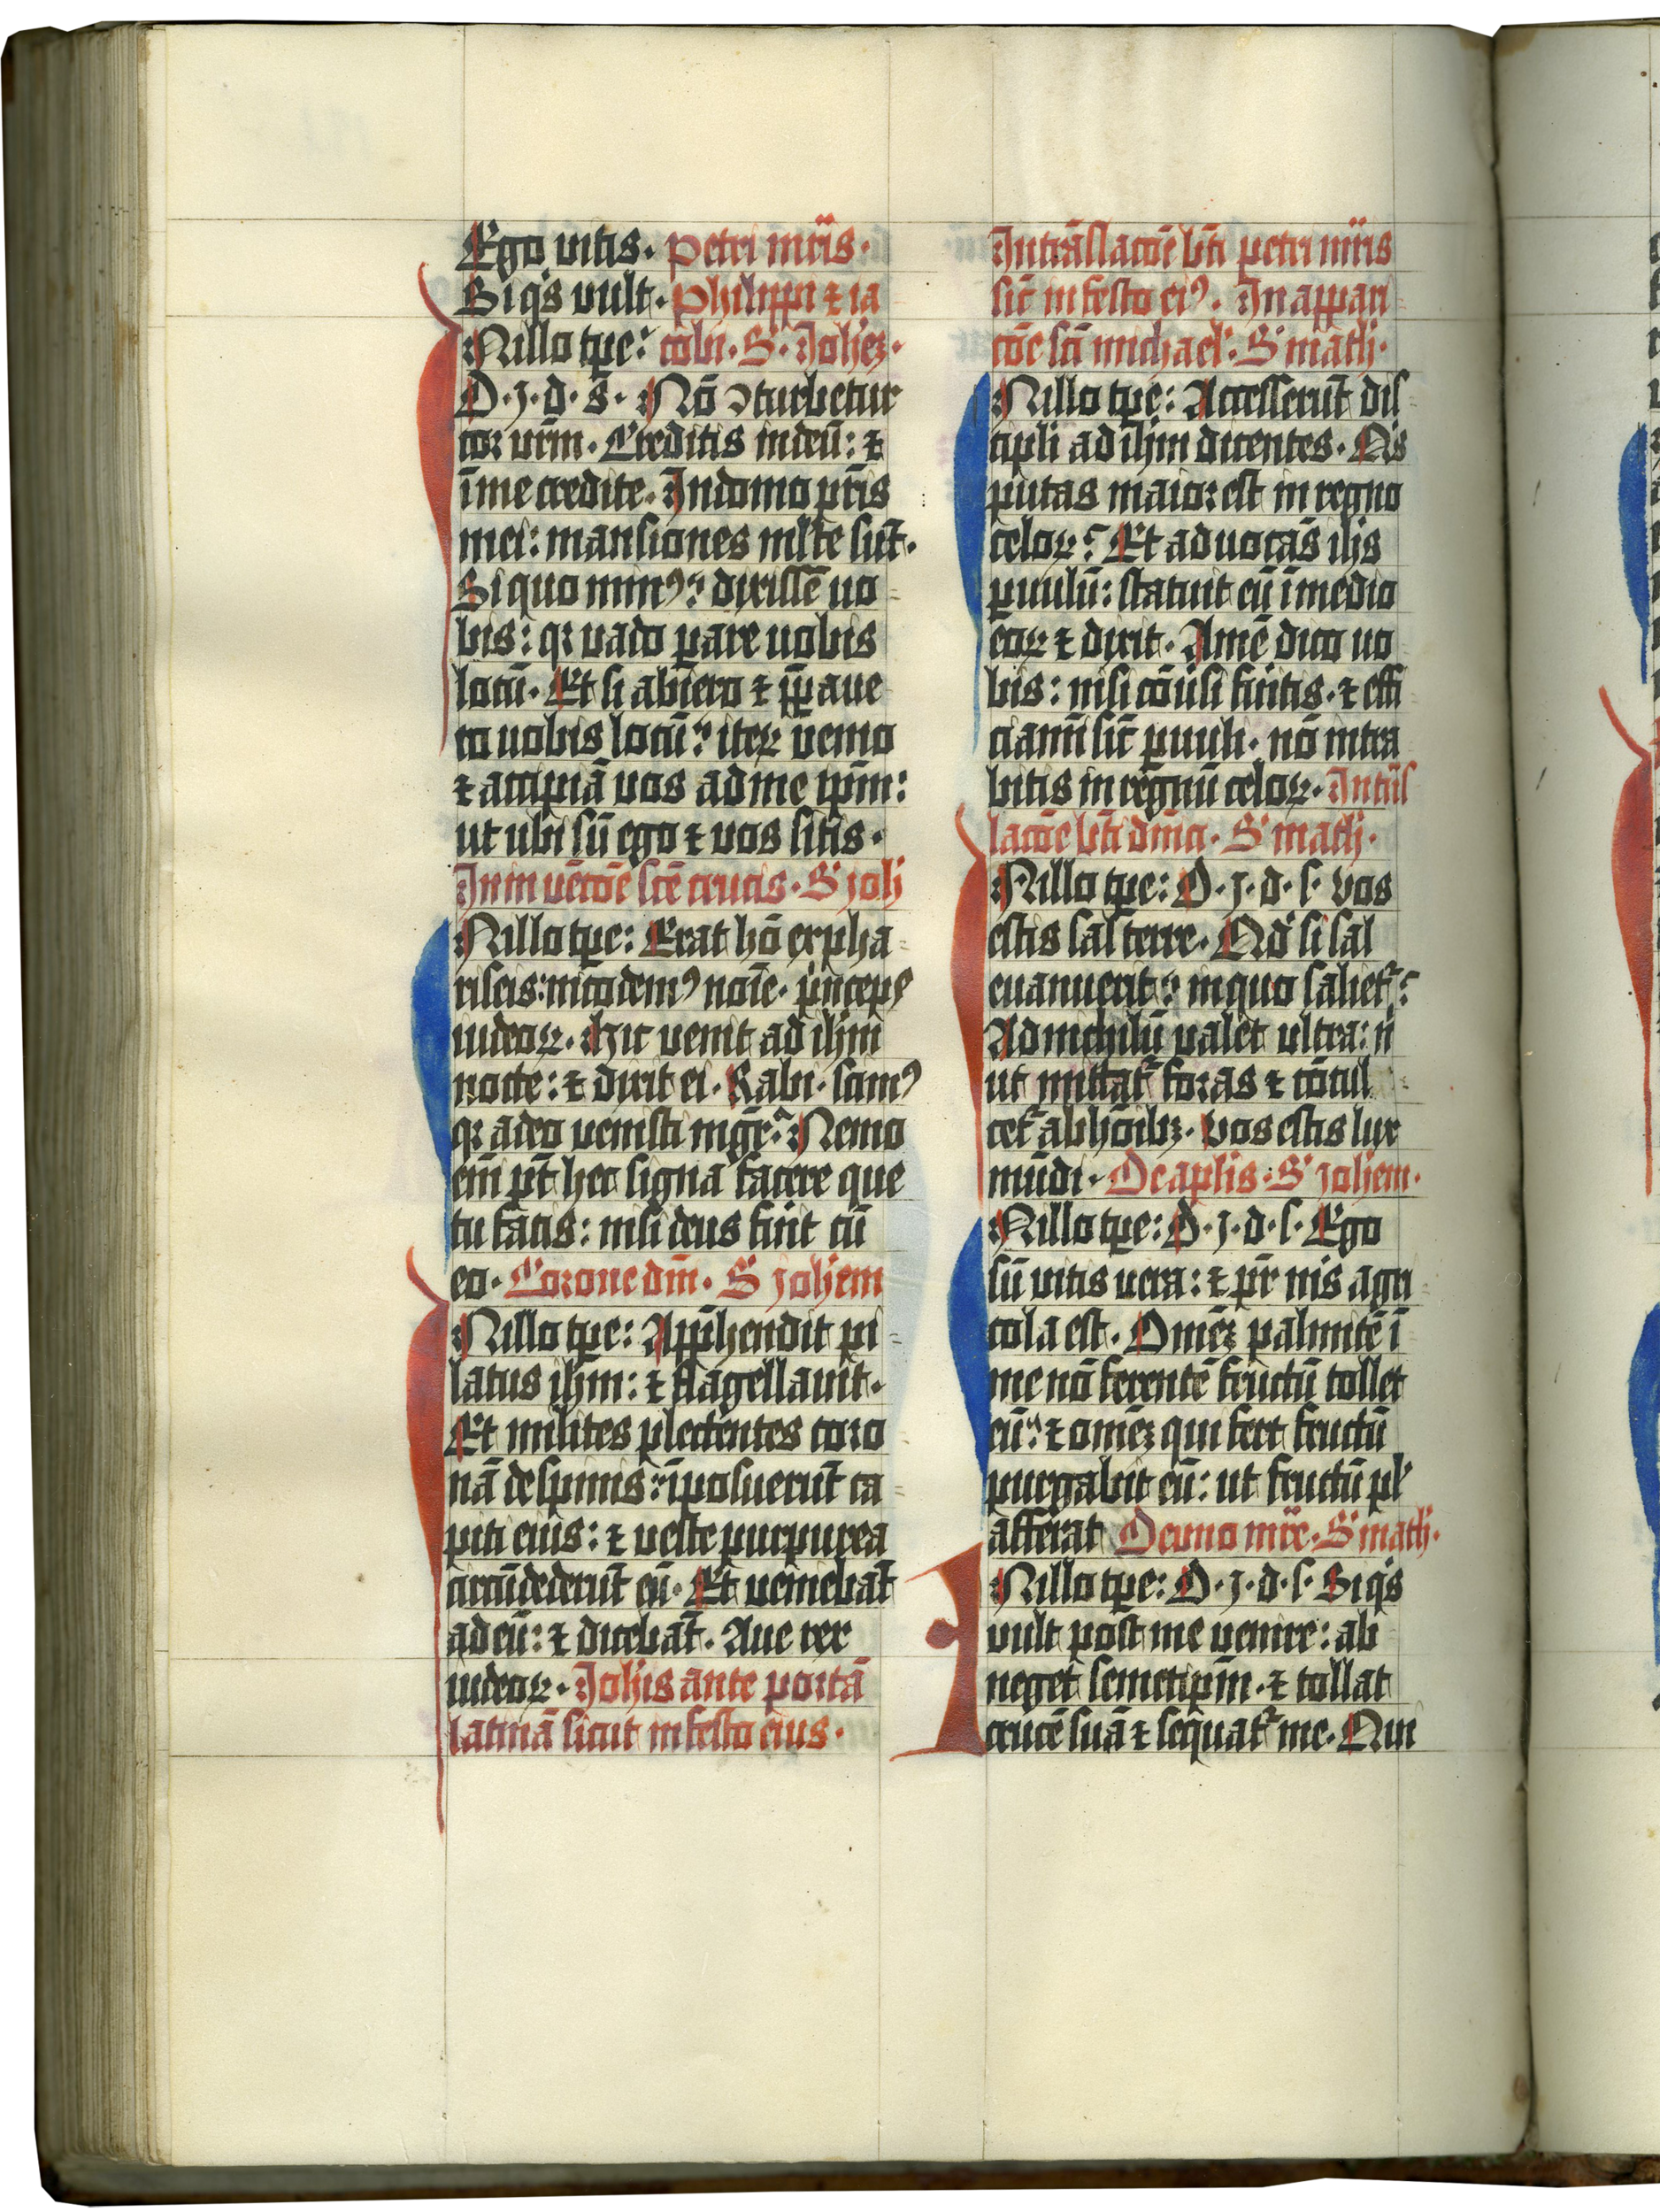 Ego vitis. petri mr̄is.
Si qͥs vult. philippi ⁊ ia
N illo tp̄e: cobi. S. Joh̄ez.
D. J. d. s. Nō ꝯturbetur
cor vr̄m. Creditis in deū: ⁊
ī me credite. In domo pr̄is
mei: mansiones ml̄te sūt.
Si quo minꝰ? dixissē uo
bis: qꝛ vado ꝑare uobis
locū. Et si abiero ⁊ p̄ꝑaue
ro uobis locū? iteꝝ venio
⁊ accipiā vos ad me ip̄m:
ut ubi sū ego ⁊ vos sitis.
In inuētōe scē crucis. S Joh̄
N illo tp̄e: Erat hō ex pha
riseis: nicodemꝰ noīe. pͥnceps
iudeoꝝ. hic venit ad ih̄m
nocte: ⁊ dixit ei. Rabi. scimꝰ
qꝛ a deo venisti mḡr. Nemo
em̄ pt̄ hec signa facere que
tu facis: nisi deus fūit cū
eo. Corone dn̄i. S Joh̄em
N illo tp̄e: App̄hendit pi
latus ih̄m: ⁊ flagellauit.
Et milites plectentes coro
nā de spinis: īposuerūt ca
piti eius: ⁊ veste purpurea
circūdederūt eū. Et veniebāt
ad eū: ⁊ dicebāt. Aue rex
iudeoꝝ. Joh̄is ante portā
latinā sicut in festo eius.
In trāslacōe bt̄i petri mr̄is
sic̄ in festo eiꝰ. In appari
cōe scī michael. S math̄.
N illo tp̄e: Accesserūt dis
cipli ad ih̄m dicentes. Qͥs
putas maior est in regno
celoꝝ? Et aduocās ih̄s
ꝑuulū: statuit eū ī medio
eoꝝ ⁊ dixit. Amē dico uo
bis: nisi cōūsi fūitis. ⁊ effi
ciamī sic̄ ꝑuuli. nō intra
bitis in regnū celoꝝ. In trās
lacōe bt̄i dn̄ici. S math̄.
N illo tp̄e: D. J. d. s. vos
estis sal terre. Qd̓ si sal
euanuerit? in quo salietᷣ?
Ad nichilū valet ultra: n̓
ut mittatᷣ foras ⁊ cōcul
cetᷣ ab hōibꝫ. vos estis lux
mūdi. De ap̄lis. S Joh̄em.
N illo tp̄e: D. J. d. s. Ego
sū vitis vera: ⁊ pr̄ ms̄ agri
cola est. Omēz palmitē ī
me nō ferentē fructū tollet
eū: ⁊ omēz qui fert fructū
purgabit eū: ut fructū pl̓
afferat De uno mr̄e. S math̄.
N illo tp̄e: D. J. d. s. Si qͥs
vult post me venire: ab
neget semetip̄m. ⁊ tollat
crucē suā ⁊ sequatᷣ me. Qui